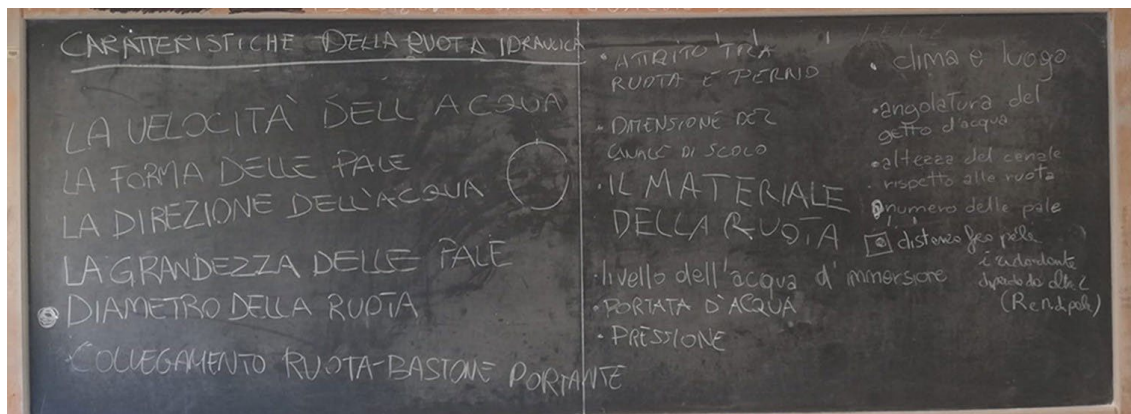 CARATTERISTICHE DELLA RUOTA IDRAULICA
LA VELOCITÀ DELL'ACQUA
LA FORMA DELLE PALE
LA DIREZIONE DELL'ACQUA
LA GRANDEZZA DELLE PALE
DIAMETRO DELLA RUOTA
COLLEGAMENTO RUOTA-BASTONE PORTANTE
• ATTRITO TRA
RUOTA E PERNO
• DIMENSIONE DEL
CANALE DI SCOLO
• IL MATERIALE
DELLA RUOTA
• livello dell'acqua d'immersione
• PORTATA D'ACQUA
• PRESSIONE
• clima e luogo
• angolatura del
getto d'acqua
• altezza del canale
rispetto alle ruota
numero delle pale
distanza fra pale
è ridondante